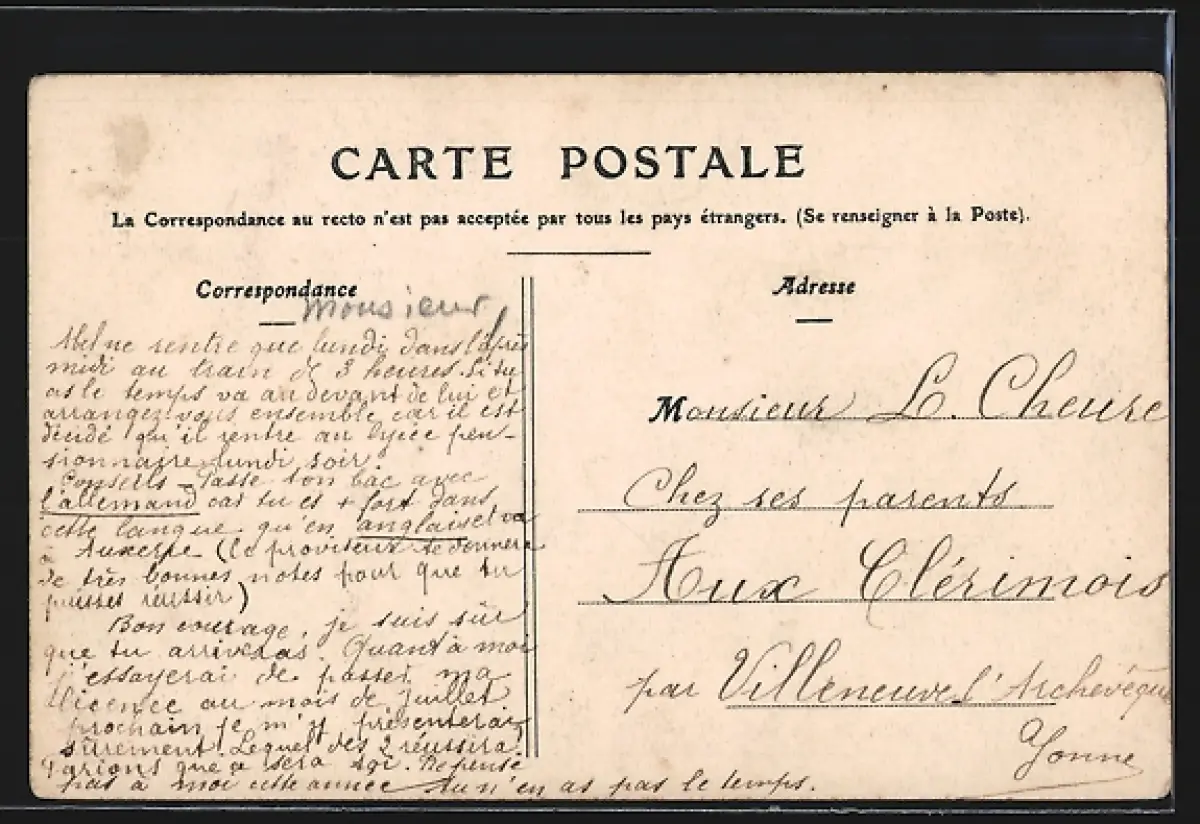 CARTE POSTALE
La Correspondance au recto n'est pas acceptée par tous les pays étrangers. (Se renseigner à la Poste).
Correspondance
Monsieur
ne rentre que lundi dans l'après
midi au train de 3 heures. Si tu
as le temps va au devant de lui et
arrangez vous ensemble car il est
décidé qu'il rentre au lycée pen-
sionnaire lundi soir.
Conseils - Passe ton bac avec
l'allemand car tu es + fort dans
cette langue qu'en anglais et va
à Auxerre (le proviseur te donnera
de très bonnes notes pour que tu
puisses réussir)
Bon courage, je suis sûr
que tu arriveras. Quant à moi
j'essayerai de passer ma
licence au mois de juillet
prochain je m'y présenterai
sûrement. Lequel des 2 réussira?
Parions que ce sera toi. Ne pense
pas à moi cette année tu n'en as pas le temps.
Adresse
Monsieur L. Cheure
Chez ses parents
Aux Clérimois
par Villeneuve l'Archevêque
Yonne